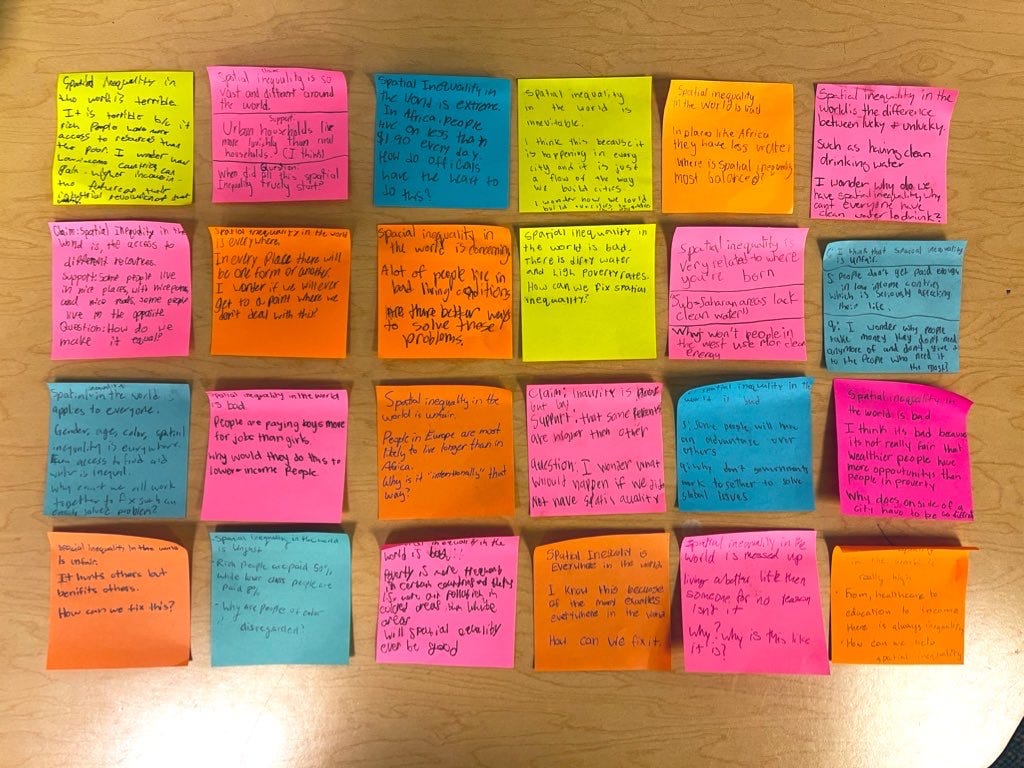 Spatial inequality in
the world is terrible.
It is terrible b/c it
rich people have more
access to resources than
the poor. I wonder how
low-income countries can
gain higher income
the future of their
Claim
Spatial inequality is so
vast and different around
the world.
Support
Urban households live
more lavishly than rural
households. (I think)
Question
When did all this spatial
Inequality truely start?
Spatial Inequality in
the World is extreme.
In Africa, people
live on less than
$1.90 every day.
How do officals
have the heart to
do this?
Spatial inequality
in the world is
inevitable.
I think this because it
is happening in every
city and it is just
a flow of the way
we build cities
I wonder how we could
build
Spatial inequality
in the world is bad
In places like Africa
they have less water
Where is spatial inequality
most balanced?
Spatial inequality in the
world is the difference
between lucky & unlucky.
Such as having clean
drinking water
I wonder why do we
have spatial inequality why
cant everyone have
clean water to drink?
Claim: Spatial Inequality in the
World is, the access to
different resources.
Support: Some people live
in nice places, with nice
and nice roads, some people
live in the opposite
Question: How do we
make it equal?
Spatial inequality in the world
is everywhere.
In every place there will
be one form or another.
I wonder if we will ever
get to a point where we
don't deal with this?
Spacial inequality in
the world is concerning
A lot of people live in
bad living conditions
Are there better ways
to solve those
problems.
Spatial inequality in
the world is bad.
There is dirty water
and high poverty rates.
How can we fix spatial
inequality?
Spatial inequality is
very related to where
you're born
"Sub-Saharan areas lack
clean water"
Why won't people in
the west use mor clean
energy
I think that spacial inequality
is unfair.
S people don't get paid enough
in low income contries
which is seriously affecting
their life.
q: I wonder why people
take money they don't need
anymore of and don't give it
to the people who need it
the most?
inequality
Spatial in the world is
applies to everyone.
Gender, age, color, spatial
inequality is everywhere.
Even access to food and
water is inequal.
Why can't we all work
together to fix such an
easily solved problem?
Spatial inequality in the world
is bad
People are paying boys more
for jobs than girls.
why would they do this to
lower-income people.
Spatial inequality in the
world is unfair.
People in Europe are most
likely to live longer than in
Africa.
Why is it "intentionally" that
way?
Claim: is
but
Support: that some
are higher then other
question: I wonder what
Would happen if we did
Not have
Spatial inequality in the
world is bad
S: Some people will have
an advantage over
others
q: why don't governments
work together to solve
global issues
Spatial inequality in
the world is bad.
I think its bad because
its not really fair that
wealthier people have
more opportunitys than
people in poverty
Why does on side of a
city have to be so different
Spacial inequality in the world
is unfair.
It hurts others but
benifits others.
How can we fix this?
Spatial inequality in the world
is unjust
- Rich people are paid 50%
while lower class people are
paid 8%
- Why are people of color
disregarded?
inequality in the
world is bad!!
Poverty is more frequent
in certain countries and there
is more air pollution in
colored areas than white
areas
Will spatial equality
ever be good
Spatial Inequality is
Everywhere in the world
I know this because
of the many examples
everywhere in the world
How can we fix it.
Spatial inequality in the
world is messed up
living a better life then
someone for no reason
isn't it
Why? why is this like
it is?
in the world is
really high
- From, healthcare to
education to income
there is always inequality
- How can we help
spatial inequality